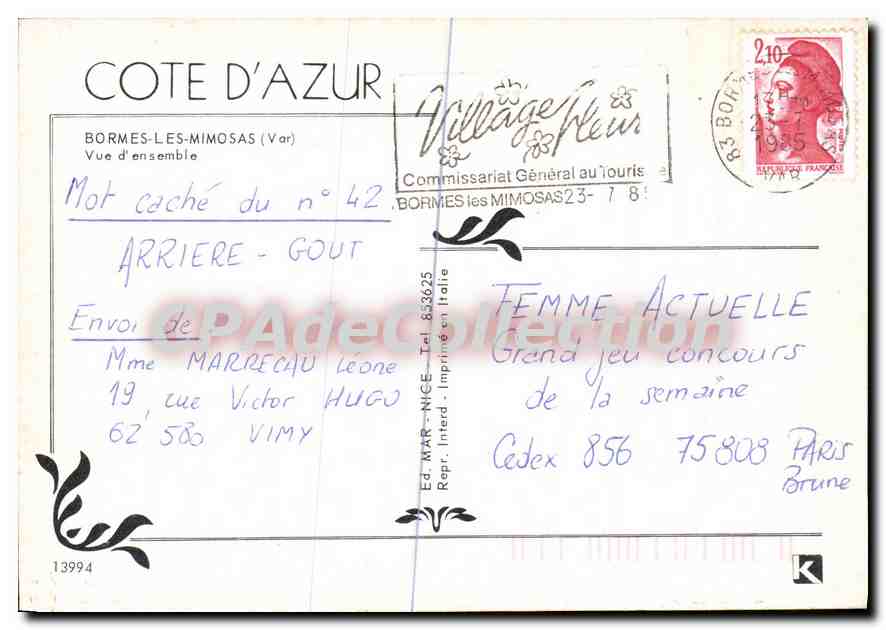 COTE D'AZUR
BORMES-LES-MIMOSAS (Var)
Vue d'ensemble
Mot caché du n° 42
ARRIERE - GOUT
Envoi de :
Mme MARRECAU Léone
19, rue Victor HUGO
62 580 VIMY
13994
Ed. MAR - NICE - Tel. 853625
Repr. Interd - Imprimé en Italie
Village fleuri
Commissariat Général au Tourisme
BORMES les MIMOSAS 23- 7 8
2,10
REPUBLIQUE FRANÇAISE
83 BOR
13H
1985
VAR
FEMME ACTUELLE
Grand jeu concours
de la semaîne
Cedex 856 75808 PARIS
Brune
K
CPAdeCollection